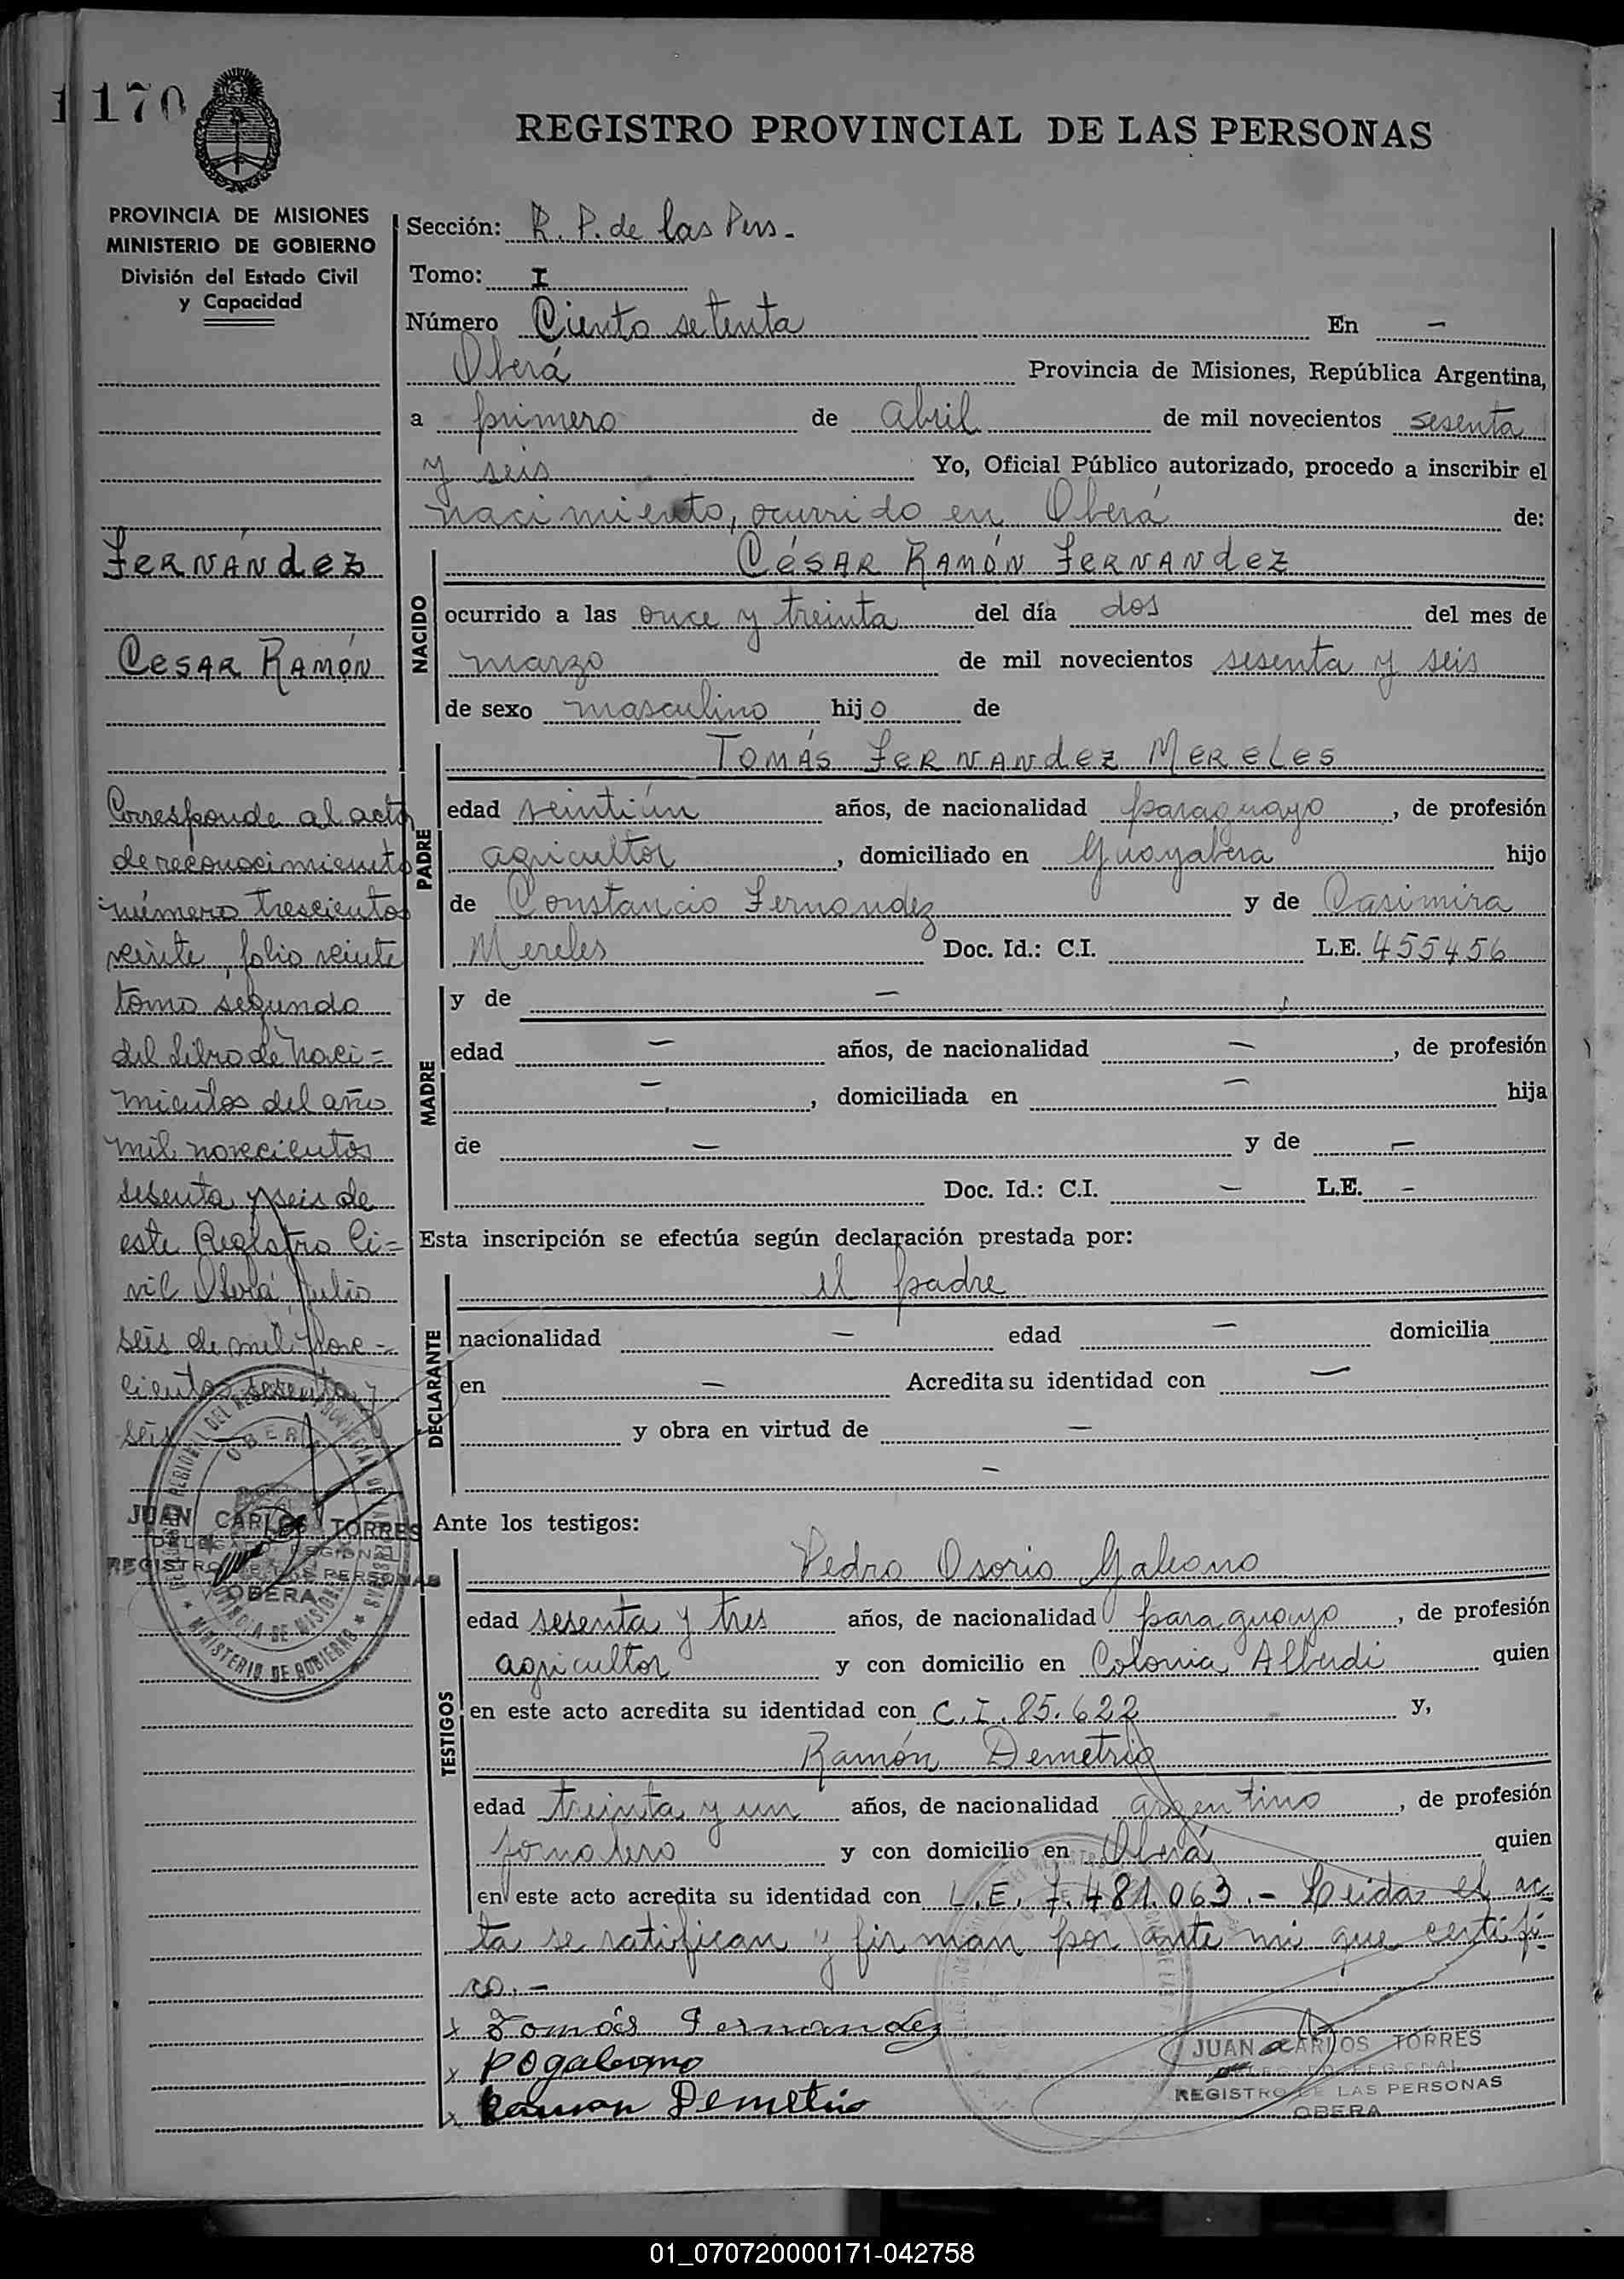 1 170
REGISTRO PROVINCIAL DE LAS PERSONAS
PROVINCIA DE MISIONES
MINISTERIO DE GOBIERNO
División del Estado Civil
y Capacidad
FERNÁNdEz
CESAR RAMÓN
Corresponde al acta
de reconocimiento
número trescientos
veinte, folio veinte
tomo segundo
del Libro de Naci=
mientos del año
mil novecientos
sesenta y seis de
este Registro Ci=
vil Oberá, julio
seis de mil nove=
cientos sesenta y
seis
JUAN CARLOS TORRES
DELEGADO REGIONAL
REGISTRO DE LAS PERSONAS
OBERA
MINISTERIO DE GOBIERNO
Sección: R. P. de las Pers.-
Tomo: I
Número Ciento setenta En —
Oberá Provincia de Misiones, República Argentina,
a primero de abril de mil novecientos sesenta
y seis Yo, Oficial Público autorizado, procedo a inscribir el
nacimiento, ocurrido en Oberá de:
NACIDO
CÉSAR RAMÓN FERNANdEZ
ocurrido a las once y treinta del día dos del mes de
marzo de mil novecientos sesenta y seis
de sexo masculino hijo de
PADRE
TOMÁS FERNANdEZ MERELES
edad veintiún años, de nacionalidad paraguayo, de profesión
agricultor, domiciliado en Guayabera hijo
de Constancio Fernandez y de Casimira
Mereles Doc. Id.: C.I. L.E. 455456
MADRE
y de —
edad — años, de nacionalidad —, de profesión
—, domiciliada en — hija
de — y de —
Doc. Id.: C.I. — L.E. -
Esta inscripción se efectúa según declaración prestada por:
DECLARANTE
el padre
nacionalidad — edad — domicilia
en — Acredita su identidad con —
y obra en virtud de —
—
Ante los testigos:
TESTIGOS
Pedro Osorio Galeano
edad sesenta y tres años, de nacionalidad paraguayo, de profesión
agricultor y con domicilio en Colonia Alberdi quien
en este acto acredita su identidad con C.I. 85.622 y,
Ramón Demetrio
edad treinta y un años, de nacionalidad argentino, de profesión
jornalero y con domicilio en Oberá quien
en este acto acredita su identidad con L.E. 7.481.063.- Leida el ac
ta se ratifican y firman por ante mi que certifi-
co.-
x Tomás Fernandez
x POgaleano
x Ramon Demetrio
JUAN CARLOS TORRES
DELEGADO REGIONAL
REGISTRO DE LAS PERSONAS
OBERA
01_070720000171-042758